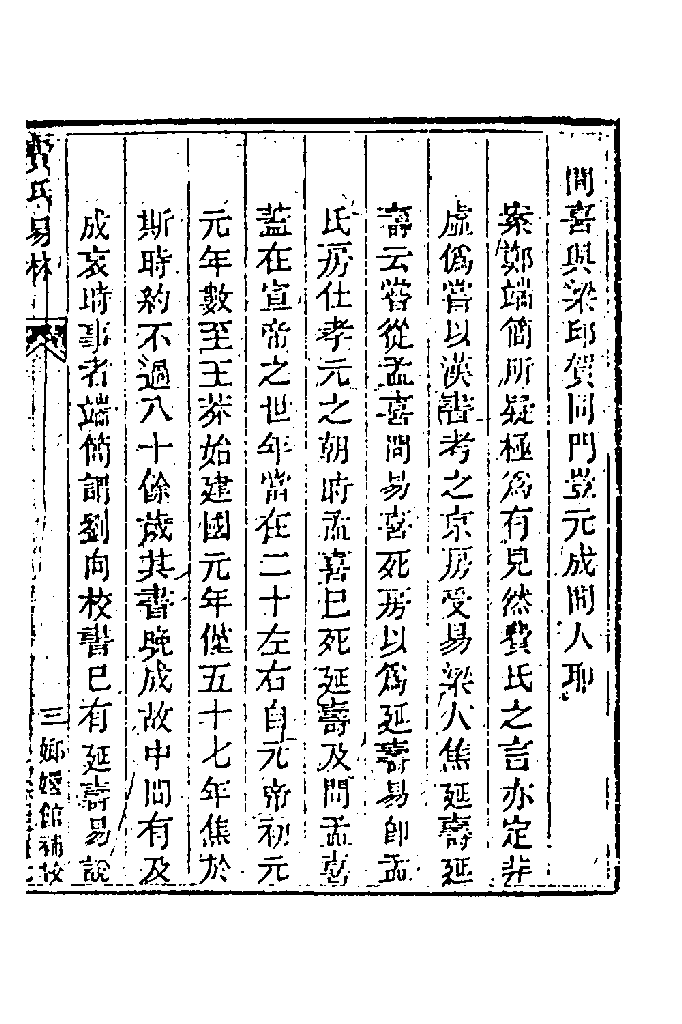 間喜與梁邱賀同門豈元成間人耶
案鄭端簡所疑極為有見然費氏之言亦定非
虛偽嘗以漢書考之京房受易梁人焦延壽延
壽云嘗從孟喜問易喜死房以為延壽易即孟
氏房仕孝元之朝時孟喜已死延壽及問孟喜
蓋在宣帝之世年當在二十左右自元帝初元
元年數至王莽始建國元年僅五十七年焦於
斯時約不過八十餘歲其書晚成故中間有及
成哀時事者端簡謂劉向校書已有延壽易說
費氏易林
三
嫏嬛館補校